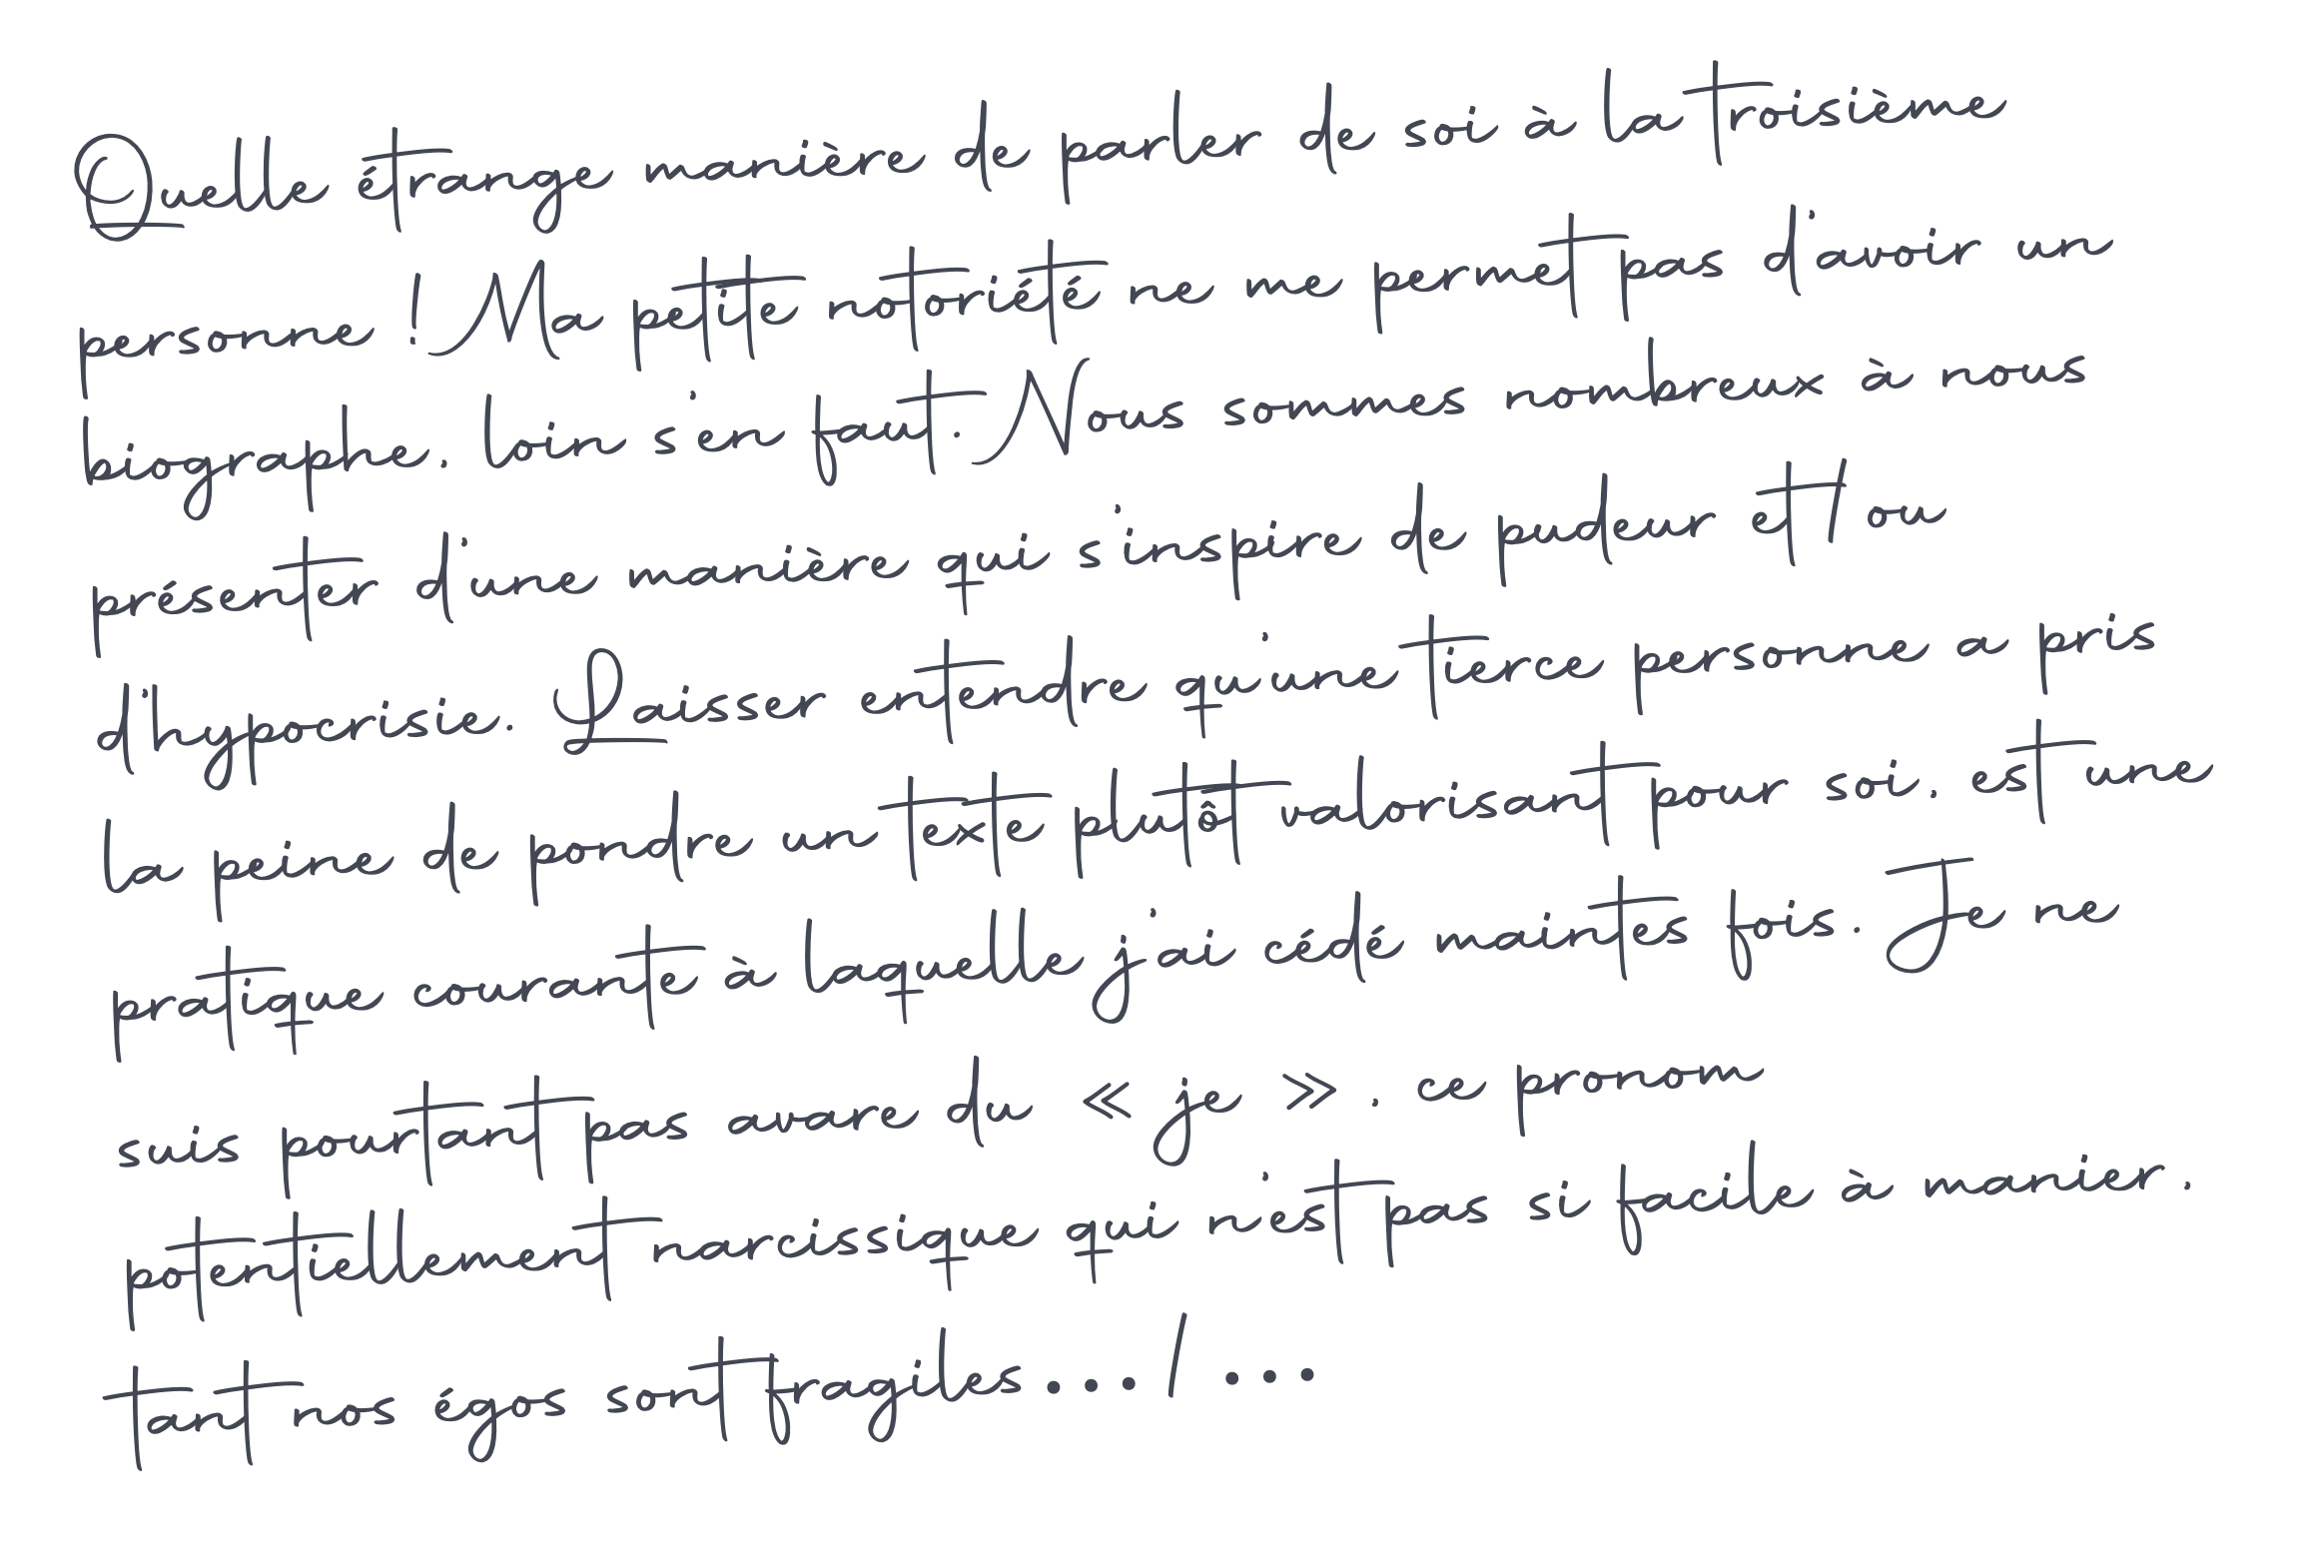 Quelle étrange manière de parler de soi à la troisième
personne ! Ma petite notoriété ne me permet pas d'avoir un
biographe, loin s'en faut. Nous sommes nombreux à nous
présenter d'une manière qui s'inspire de pudeur et/ou
d'hypocrisie. Laisser entendre qu'une tierce personne a pris
la peine de pondre un texte plutôt valorisant pour soi, est une
pratique courante à laquelle j'ai cédé maintes fois. Je ne
suis pourtant pas avare du « je », ce pronom
potentiellement narcissique qui n'est pas si facile à manier,
tant nos égos sont fragiles.../ ...